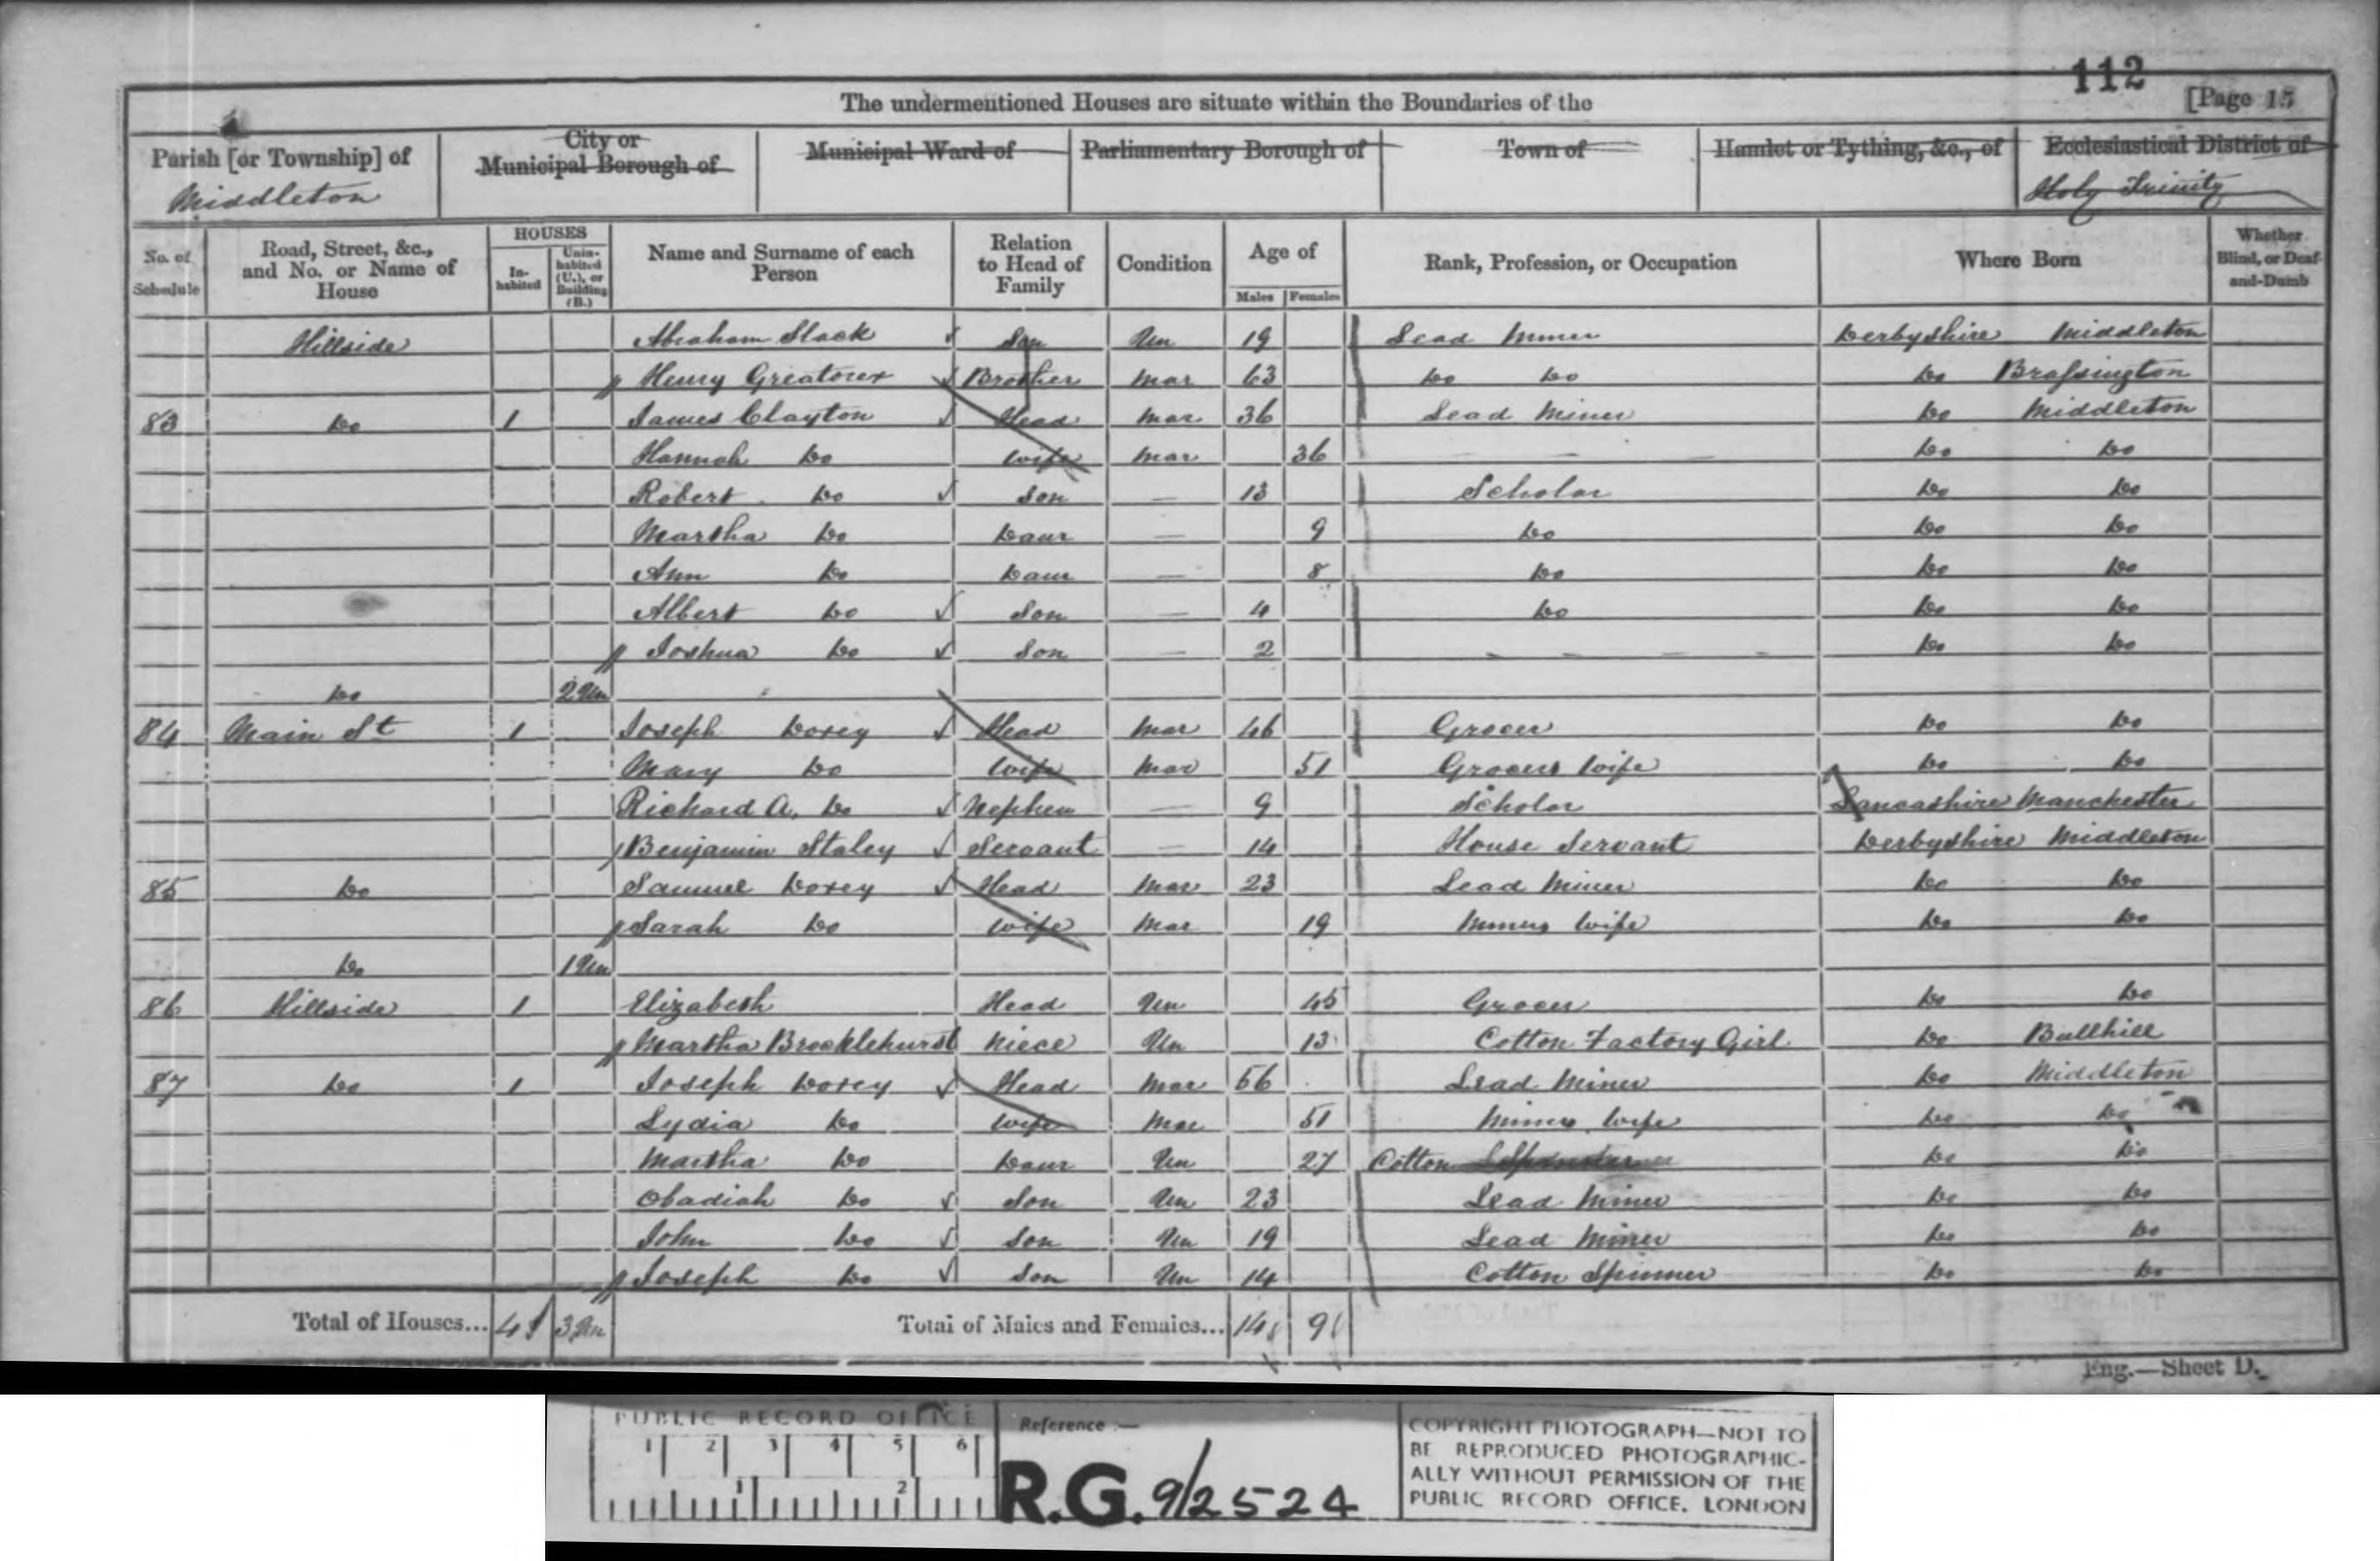 112
The undermentioned Houses are situate within the Boundaries of the
[Page 15
Parish [or Township] of
Middleton
City or
Municipal Borough of
Municipal Ward of
Parliamentary Borough of
Town of
Hamlet or Tything, &c., of
Ecclesiastical District of
Holy Trinity
No. of Schedule
Road, Street, &c., and No. or Name of House
HOUSES
In-habited
Unin-habited (U.), or Building (B.)
Name and Surname of each Person
Relation to Head of Family
Condition
Age of
Males
Females
Rank, Profession, or Occupation
Where Born
Whether Blind, or Deaf-and-Dumb
Hillside Abraham Slack Son Un 19 Lead Miner Derbyshire Middleton
Henry Greatorex Brother Mar 63 Do Do Do Brassington
83 Do 1 James Clayton Head Mar 36 Lead Miner Do Middleton
Hannah Do Wife Mar 36 Do Do
Robert Do Son — 13 Scholar Do Do
Martha Do Daur — 9 Do Do Do
Ann Do Daur — 8 Do Do Do
Albert Do Son — 4 Do Do Do
Joshua Do Son — 2 Do Do
Do 2 Un
84 Main St 1 Joseph Doxey Head Mar 46 Grocer Do Do
Mary Do Wife Mar 51 Grocers Wife Do Do
Richard A. Do Nephew — 9 Scholar Lancashire Manchester
Benjamin Staley Servant — 14 House Servant Derbyshire Middleton
85 Do Samuel Doxey Head Mar 23 Lead Miner Do Do
Sarah Do Wife Mar 19 Miners Wife Do Do
Do 1 Un
86 Hillside 1 Elizabeth Head Un 45 Grocer Do Do
Martha Brocklehurst Niece Un 13 Cotton Factory Girl Do Bullhill
87 Do 1 Joseph Doxey Head Mar 56 Lead Miner Do Middleton
Lydia Do Wife Mar 51 Miners Wife Do Do
Martha Do Daur Un 27 Cotton Do Do
Obadiah Do Son Un 23 Lead Miner Do Do
John Do Son Un 19 Lead Miner Do Do
Joseph Do Son Un 14 Cotton Spinner Do Do
Total of Houses... 4 3 Un
Total of Males and Females... 14 9
Eng.—Sheet D.
PUBLIC RECORD OFFICE
1 2 3 4 5 6
1 2
Reference :—
R.G. 9/2524
COPYRIGHT PHOTOGRAPH—NOT TO
BE REPRODUCED PHOTOGRAPHIC-
ALLY WITHOUT PERMISSION OF THE
PUBLIC RECORD OFFICE, LONDON